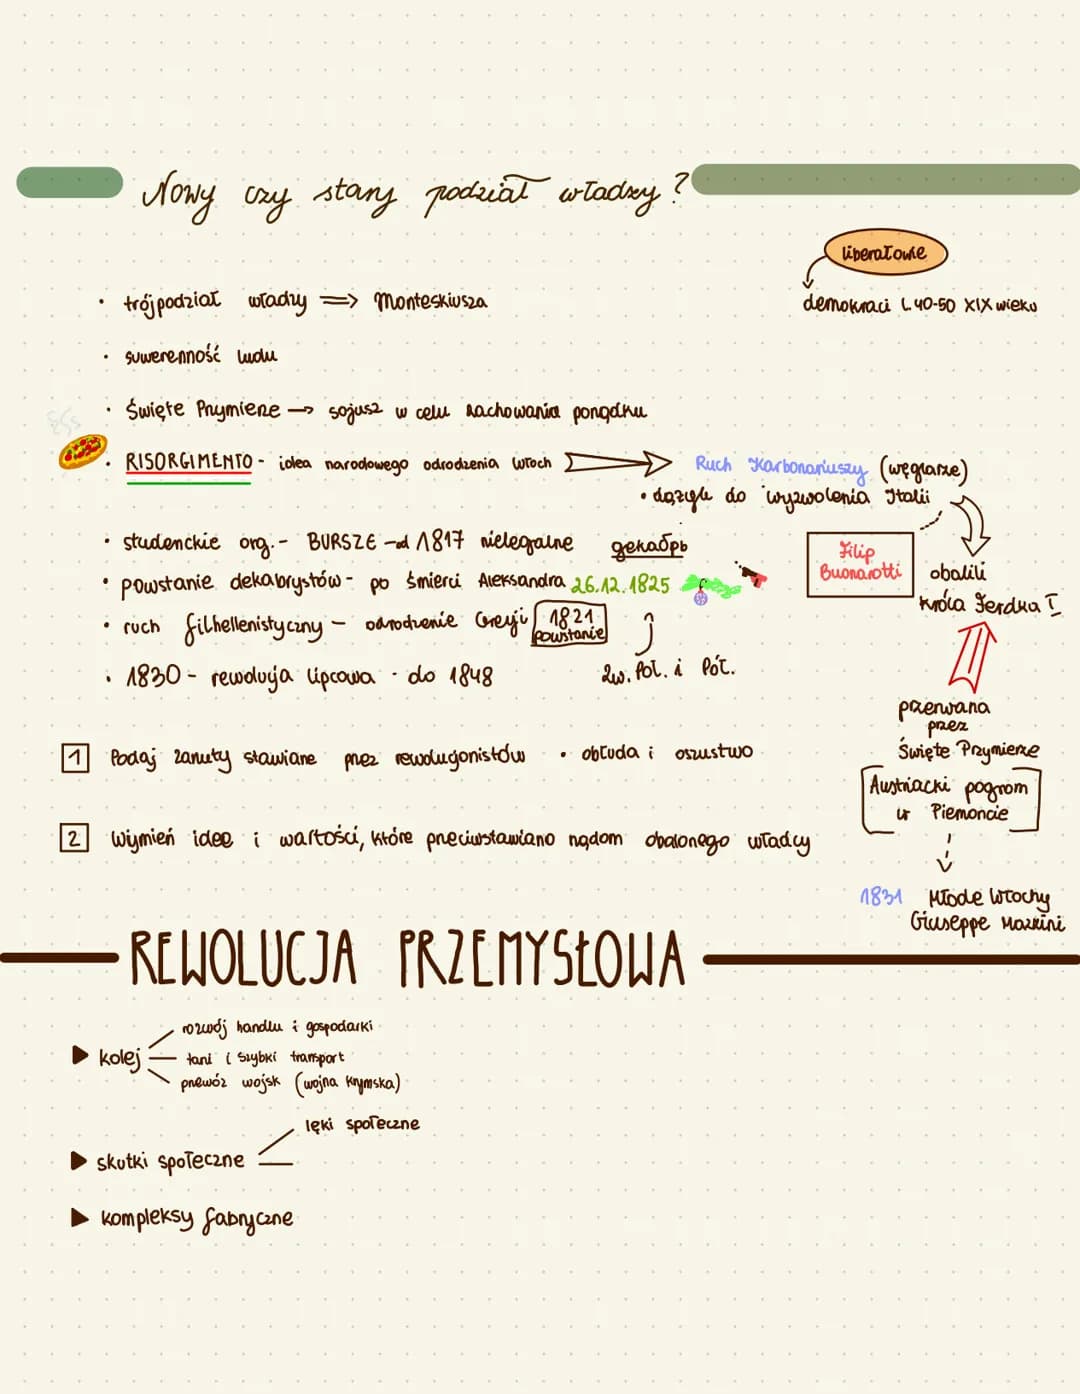 Nowy czy stary podział władzy?
liberałowie
demokraci l. 40-50 XIX wieku
• trójpodział władzy => Monteskiusza
• suwerenność ludu
• Święte Przymierze → sojusz w celu zachowania porządku
• RISORGIMENTO - idea narodowego odrodzenia Włoch
Ruch Karbonariuszy (węglarze)
• dążyli do wyzwolenia Italii
• studenckie org. - BURSZE - od 1817 nielegalne
декабрь
Filip
Buonarotti
obalili
króla Ferdka I
• powstanie dekabrystów - po śmierci Aleksandra 26.12.1825
• ruch filhellenistyczny - odrodzenie Grecji 1821
powstanie
• 1830 - rewolucja lipcowa - do 1848
zw. Poł. i Płt.
przerwana
przez
Święte Przymierze
Austriacki pogrom
w Piemoncie
1831 Młode Włochy
Giuseppe Mazzini
1 Podaj zarzuty stawiane przez rewolucjonistów • obłuda i oszustwo
2 Wymień idee i wartości, które przeciwstawiano rządom obalonego władcy
REWOLUCJA PRZEMYSŁOWA
kolej
rozwój handlu i gospodarki
tani i szybki transport
przewóz wojsk (wojna krymska)
skutki społeczne
lęki społeczne
kompleksy fabryczne